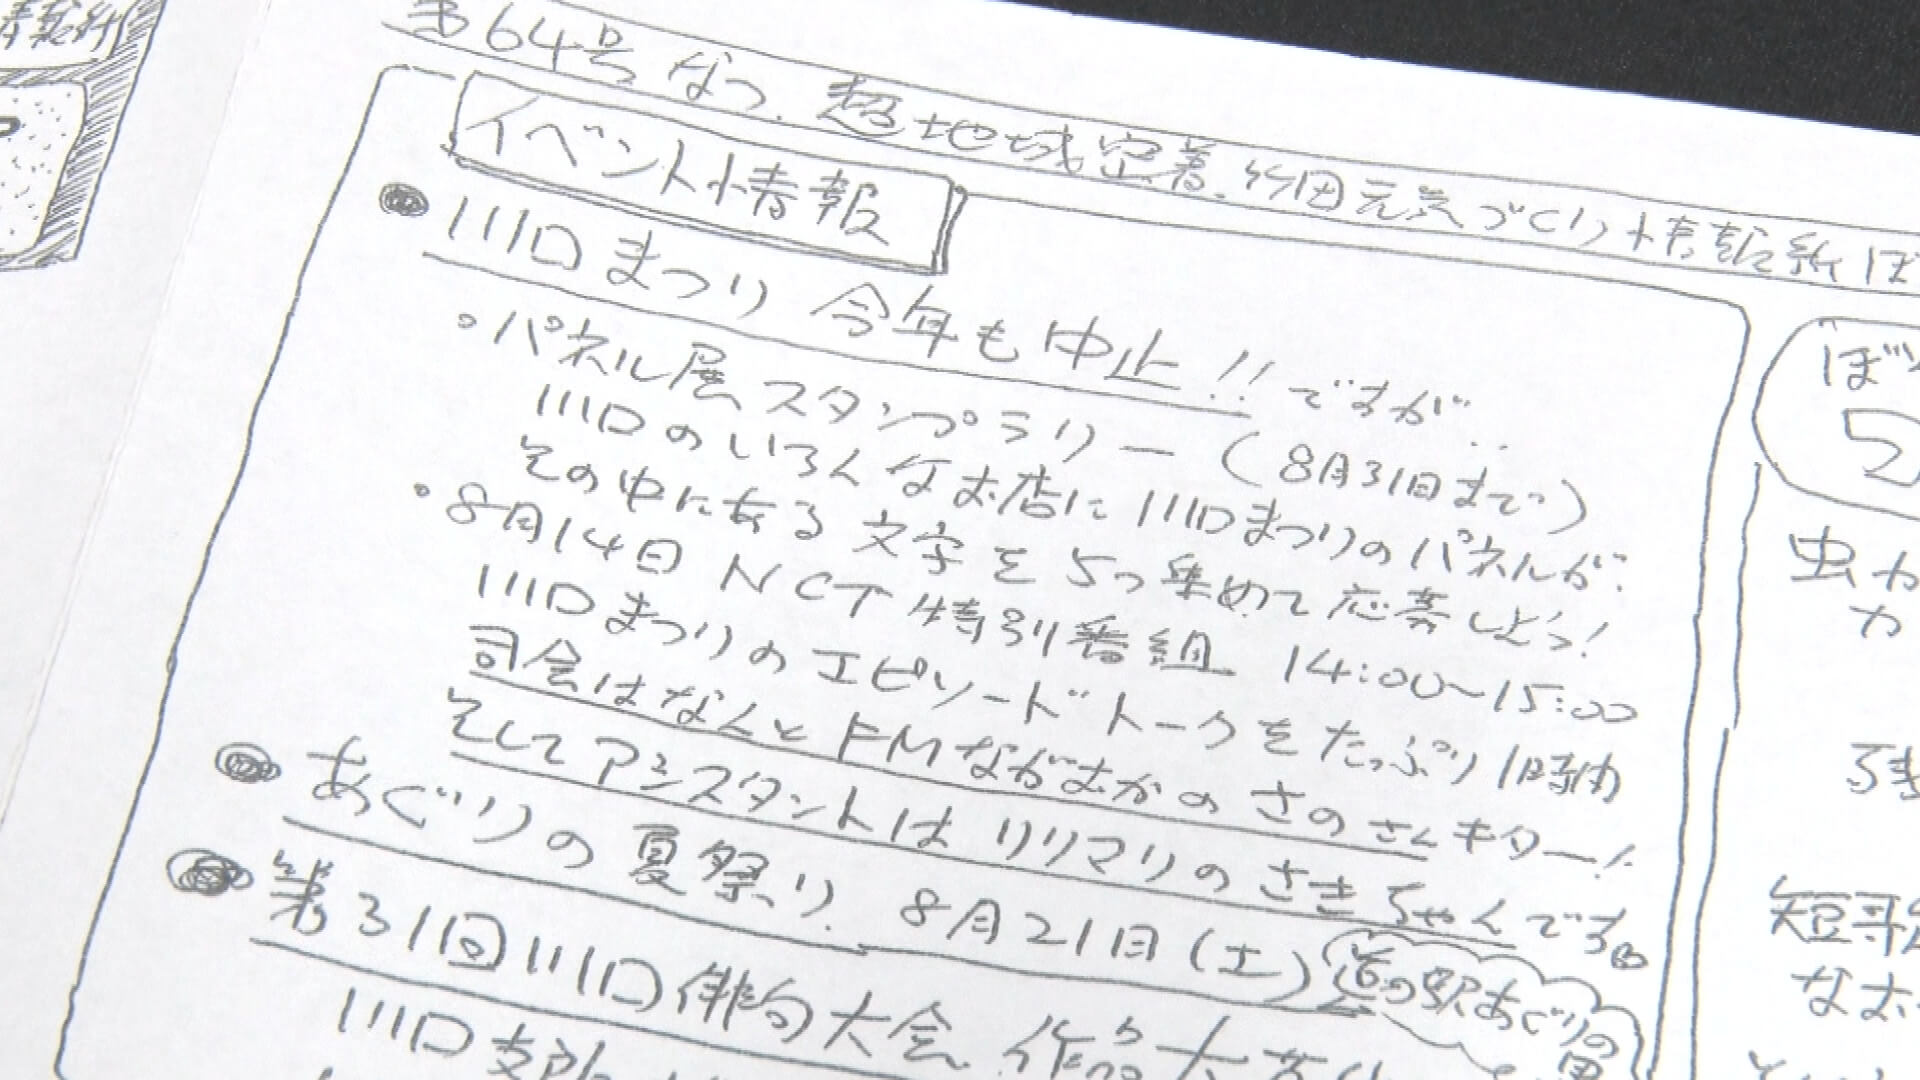 第64号 なつ. 超地域密着. 竹田元気づくり情報紙 ぼ
イベント情報
川口まつり 今年も中止!! ですが..
・パネル展スタンプラリー (8月31日まで)
川口のいろんなお店に川口まつりのパネルが.
その中にある文字を5つ集めて応募しよう!
・8月14日 NCT 特別番組 14:00~15:00
川口まつりのエピソードトークをたっぷり1時間
司会はなんとFMながおかのさのさんキター!
そしてアシスタントはリリマリのさきちゃんです。
あぐりの夏祭り. 8月21日(土)
道の駅あぐりの
第31回川口俳句大会. 作品大募
川口支所
ぼ
虫
カ
短歌
なお